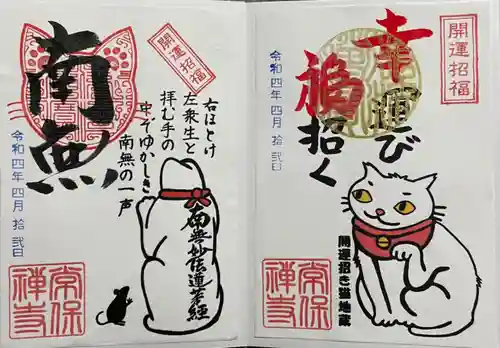 開運招福
南無
右ほとけ
左衆生と
拝む手の
中ぞゆかしき
南無の一声
令和四年四月拾弐日
南無妙法蓮華経
常保
禅寺
開運招福
幸運び
福招く
令和四年四月拾弐日
開運招き猫地蔵
常保
禅寺